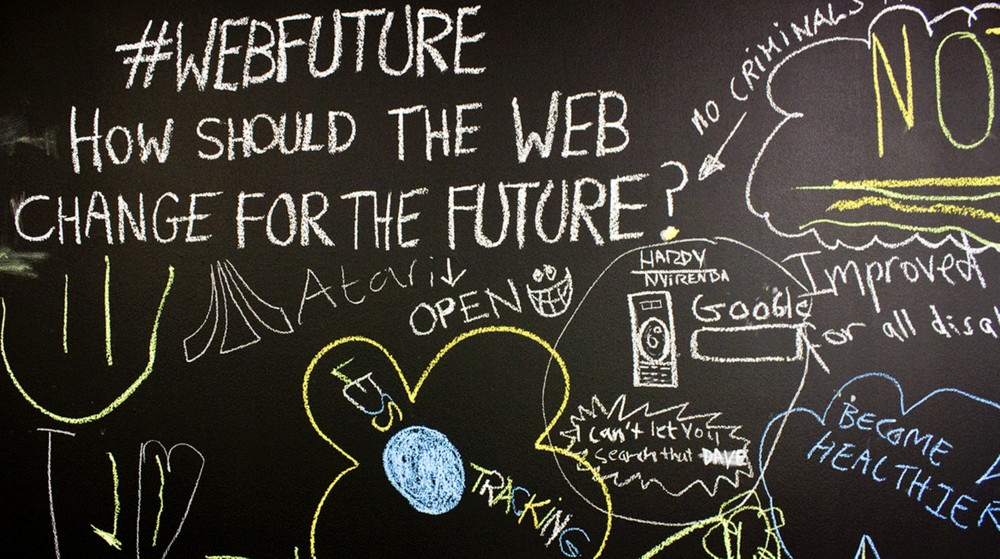 #WEBFUTURE
HOW SHOULD THE WEB
CHANGE FOR THE FUTURE?
NO CRIMINALS
NO
Atari
OPEN
HARDY
NYIRENDA
GOOGLE
I can't let you
search that DAVE
Improved
for all
LESS
TRACKING
BECOME
HEALTHIER